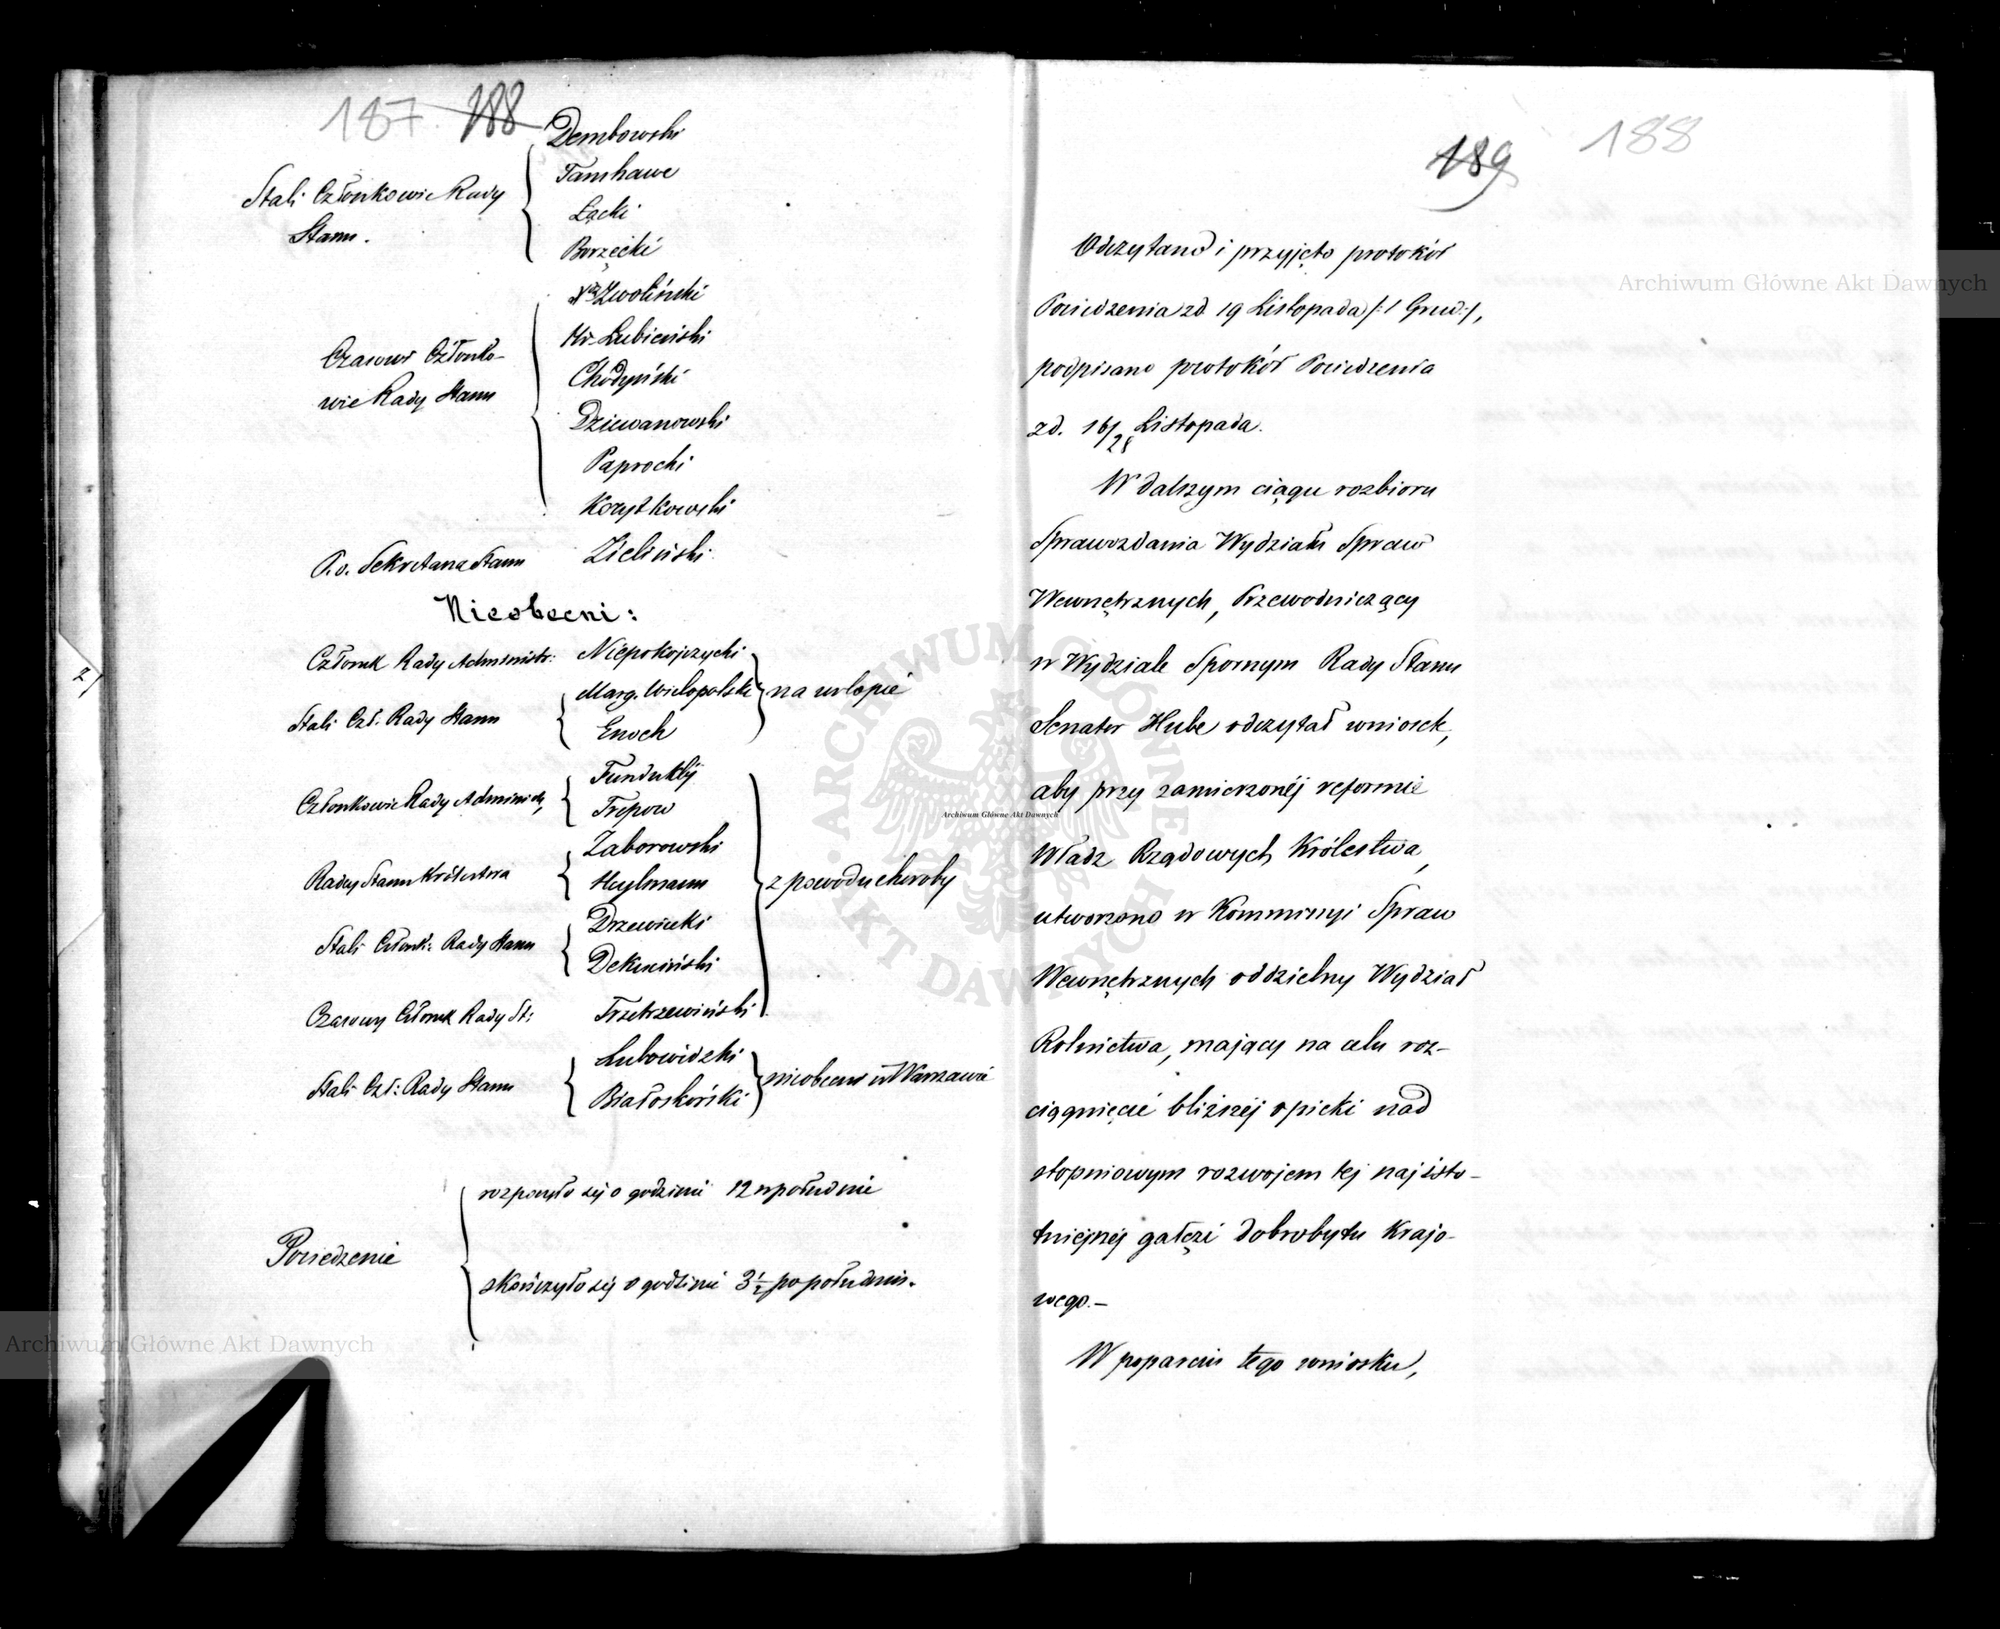 187. 188
Dembowski
Stali Członkowie Rady
Stanu.
Łącki
Borzęcki
Zwoliński
Hr. Łubieński
Czasowi Członko-
wie Rady Stanu
Chodyński
Dziewanowski
Paprocki
Korytkowski
P. o. Sekretarza Stanu Zieliński
Nieobecni:
Członek Rady Administr: Niepokojczycki
Stali Czł. Rady Stanu Marg. Wielopolski
Enoch
na urlopie
Członkowie Rady Administr Funduklej
Trepow
Radcy Stanu Królestwa Zaborowski
Heylmann
z powodu choroby
Stali Członk: Rady Stanu Drzewiecki
Dekuciński
Czasowy Członek Rady St: Trzetrzewiński
Stali Czł: Rady Stanu Lubowidzki
Białoskórski
nieobecni w Warszawie
Posiedzenie
rozpoczęło się o godzinie 12 w południe
skończyło się o godzinie 3 1/2 po południu.
189 188
Odczytano i przyjęto protokół
Posiedzenia z d. 19 Listopada /:1 Grud:/,
podpisano protokół Posiedzenia
z d. 16/28 Listopada.
W dalszym ciągu rozbioru
Sprawozdania Wydziału Spraw
Wewnętrznych, Przewodniczący
w Wydziale Spornym Rady Stanu
Senator Hube odczytał wniosek,
aby przy zamierzonéj reformie
Władz Rządowych Królestwa,
utworzono w Kommissyi Spraw
Wewnętrznych oddzielny Wydział
Rolnictwa, mający na celu roz-
ciągnięcie bliższéj opieki nad
stopniowym rozwojem tej najisto-
tniejszéj gałęzi dobrobytu krajo-
wego.-
W poparciu tego wniosku,
Archiwum Główne Akt Dawnych
Archiwum Główne Akt Dawnych
Archiwum Główne Akt Dawnych
ARCHIWUM GŁÓWNE AKT DAWNYCH